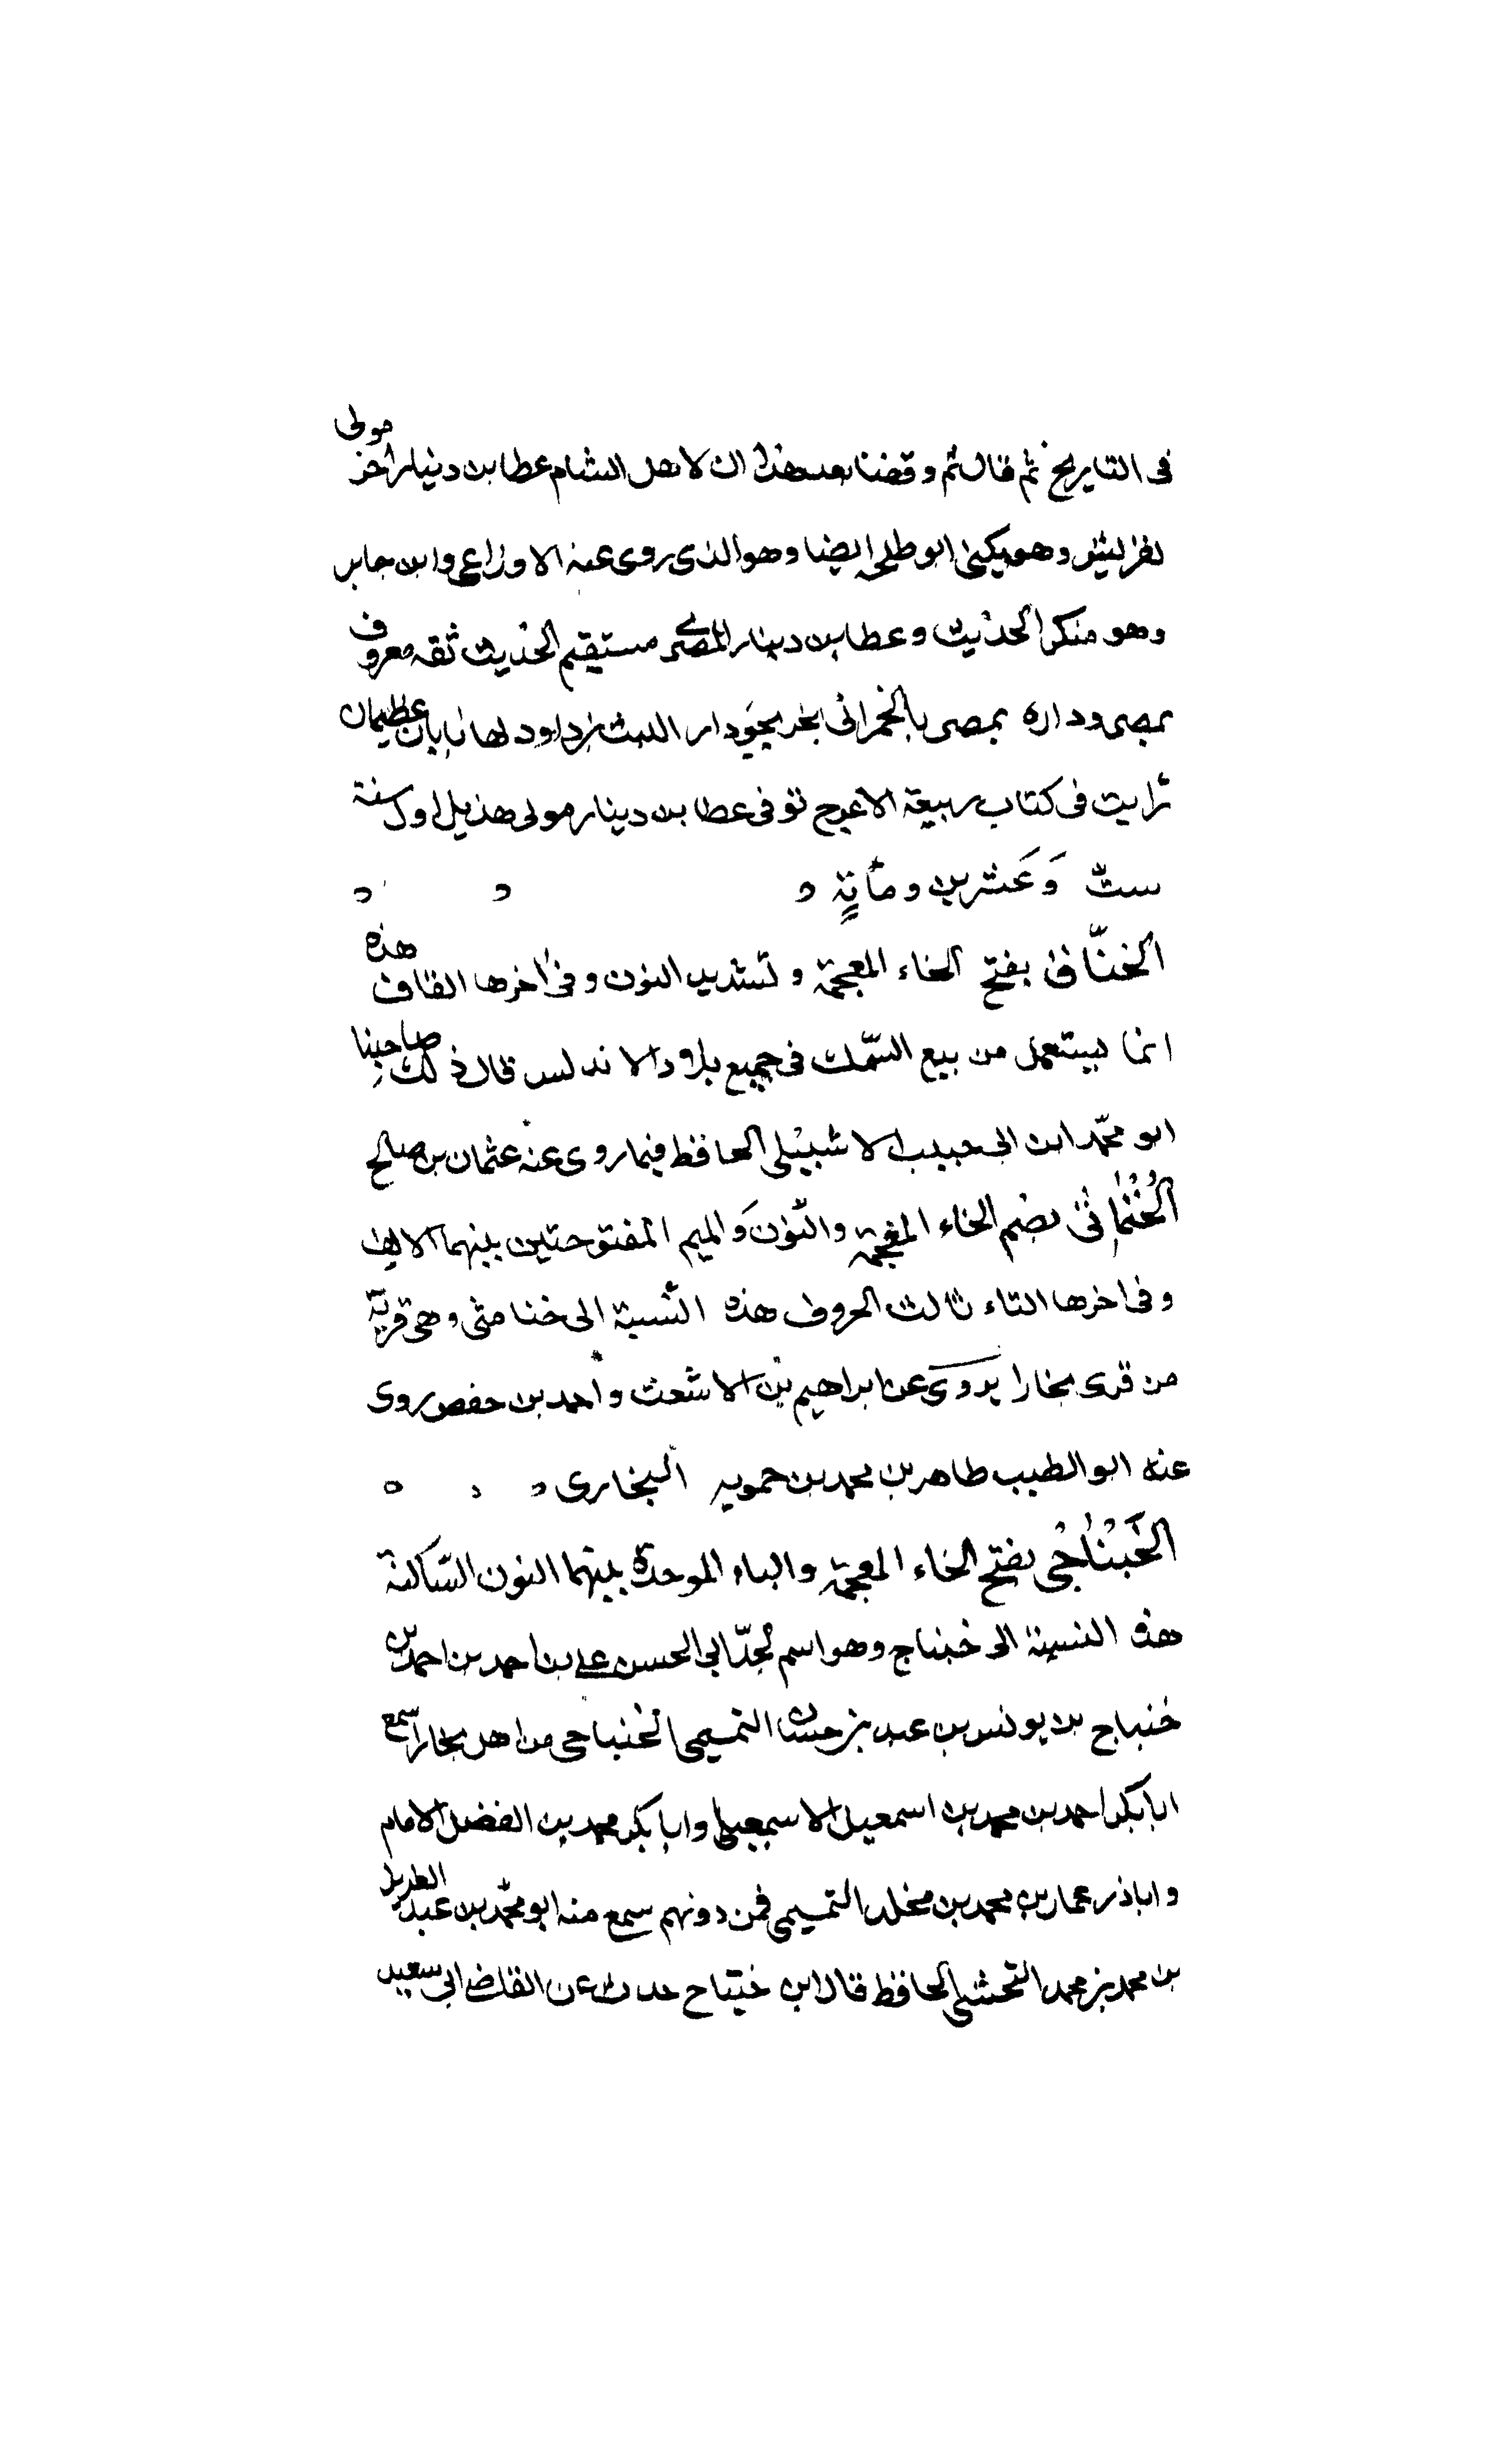 فى التاريخ ثم قال ثم وقفنا بعد هذا ان لاهل الشام عطا بن دينار اخر مولى
لقريش وهو يكنى ابو طلحه ايضا وهو الذى روى عنه الاوزاعى وابن جابر
وهو منكر الحديث وعطا بن دينار المصرى مستقيم الحديث ثقه معروف
بمصر وداره بمصر بالحمراء دار الليث بن داود لها بابان عظيمان
رايت فى كتاب ربيعة الاعرج توفى عطا بن دينار مولى هذيل اول سنة
ستّ وَعَشرين ومأيةٍ
الخنّاقى بفتح الخاء المعجمة وتشديد النون وفى اخرها القاف هذه
انما يستعمل من بيع السّمك فى جميع بلاد الاندلس قال ذلك صاحبنا
ابو محمّد ابن ابى حبيب الاشبيلى الحافظ فيما روى عنه عثمان بن صالح
الخُنَامَتى بضم الخاء المعجمة والنّون وَالميم المفتوحتين بينهما الالف
وفى اخرها التاء ثالث الحروف هذه النّسبة الى خنامتى وهى قرية
من قرى بخارا يروى عن ابراهيم بن الاشعث واحمد بن حفص روى
عنه ابو الطيب طاهر بن محمد بن حمويه البخارى
الخَنْبَاجى بفتح الخاء المعجمة والباء الموحدة بينهما النون السّاكنة
هذه النسبة الى خنباج وهو اسم لجدّ ابى الحسن على بن احمد بن احمد بن
خنباج بن يونس بن عبد بن حسان التميمى الخنباجى من اهل بخارا سمع
ابا بكر احمد بن محمد بن اسمعيل الاسمعيلى وابا بكر محمد بن الفضل الامام
وابا ذر عمار بن محمد بن مخلد التميمى فمن دونهم سمع منه ابو محمّد بن عبد العزيز
بن محمد بن محمد النخشبى الحافظ قال ابن خنباج حدث عن القاضى ابى سعيد